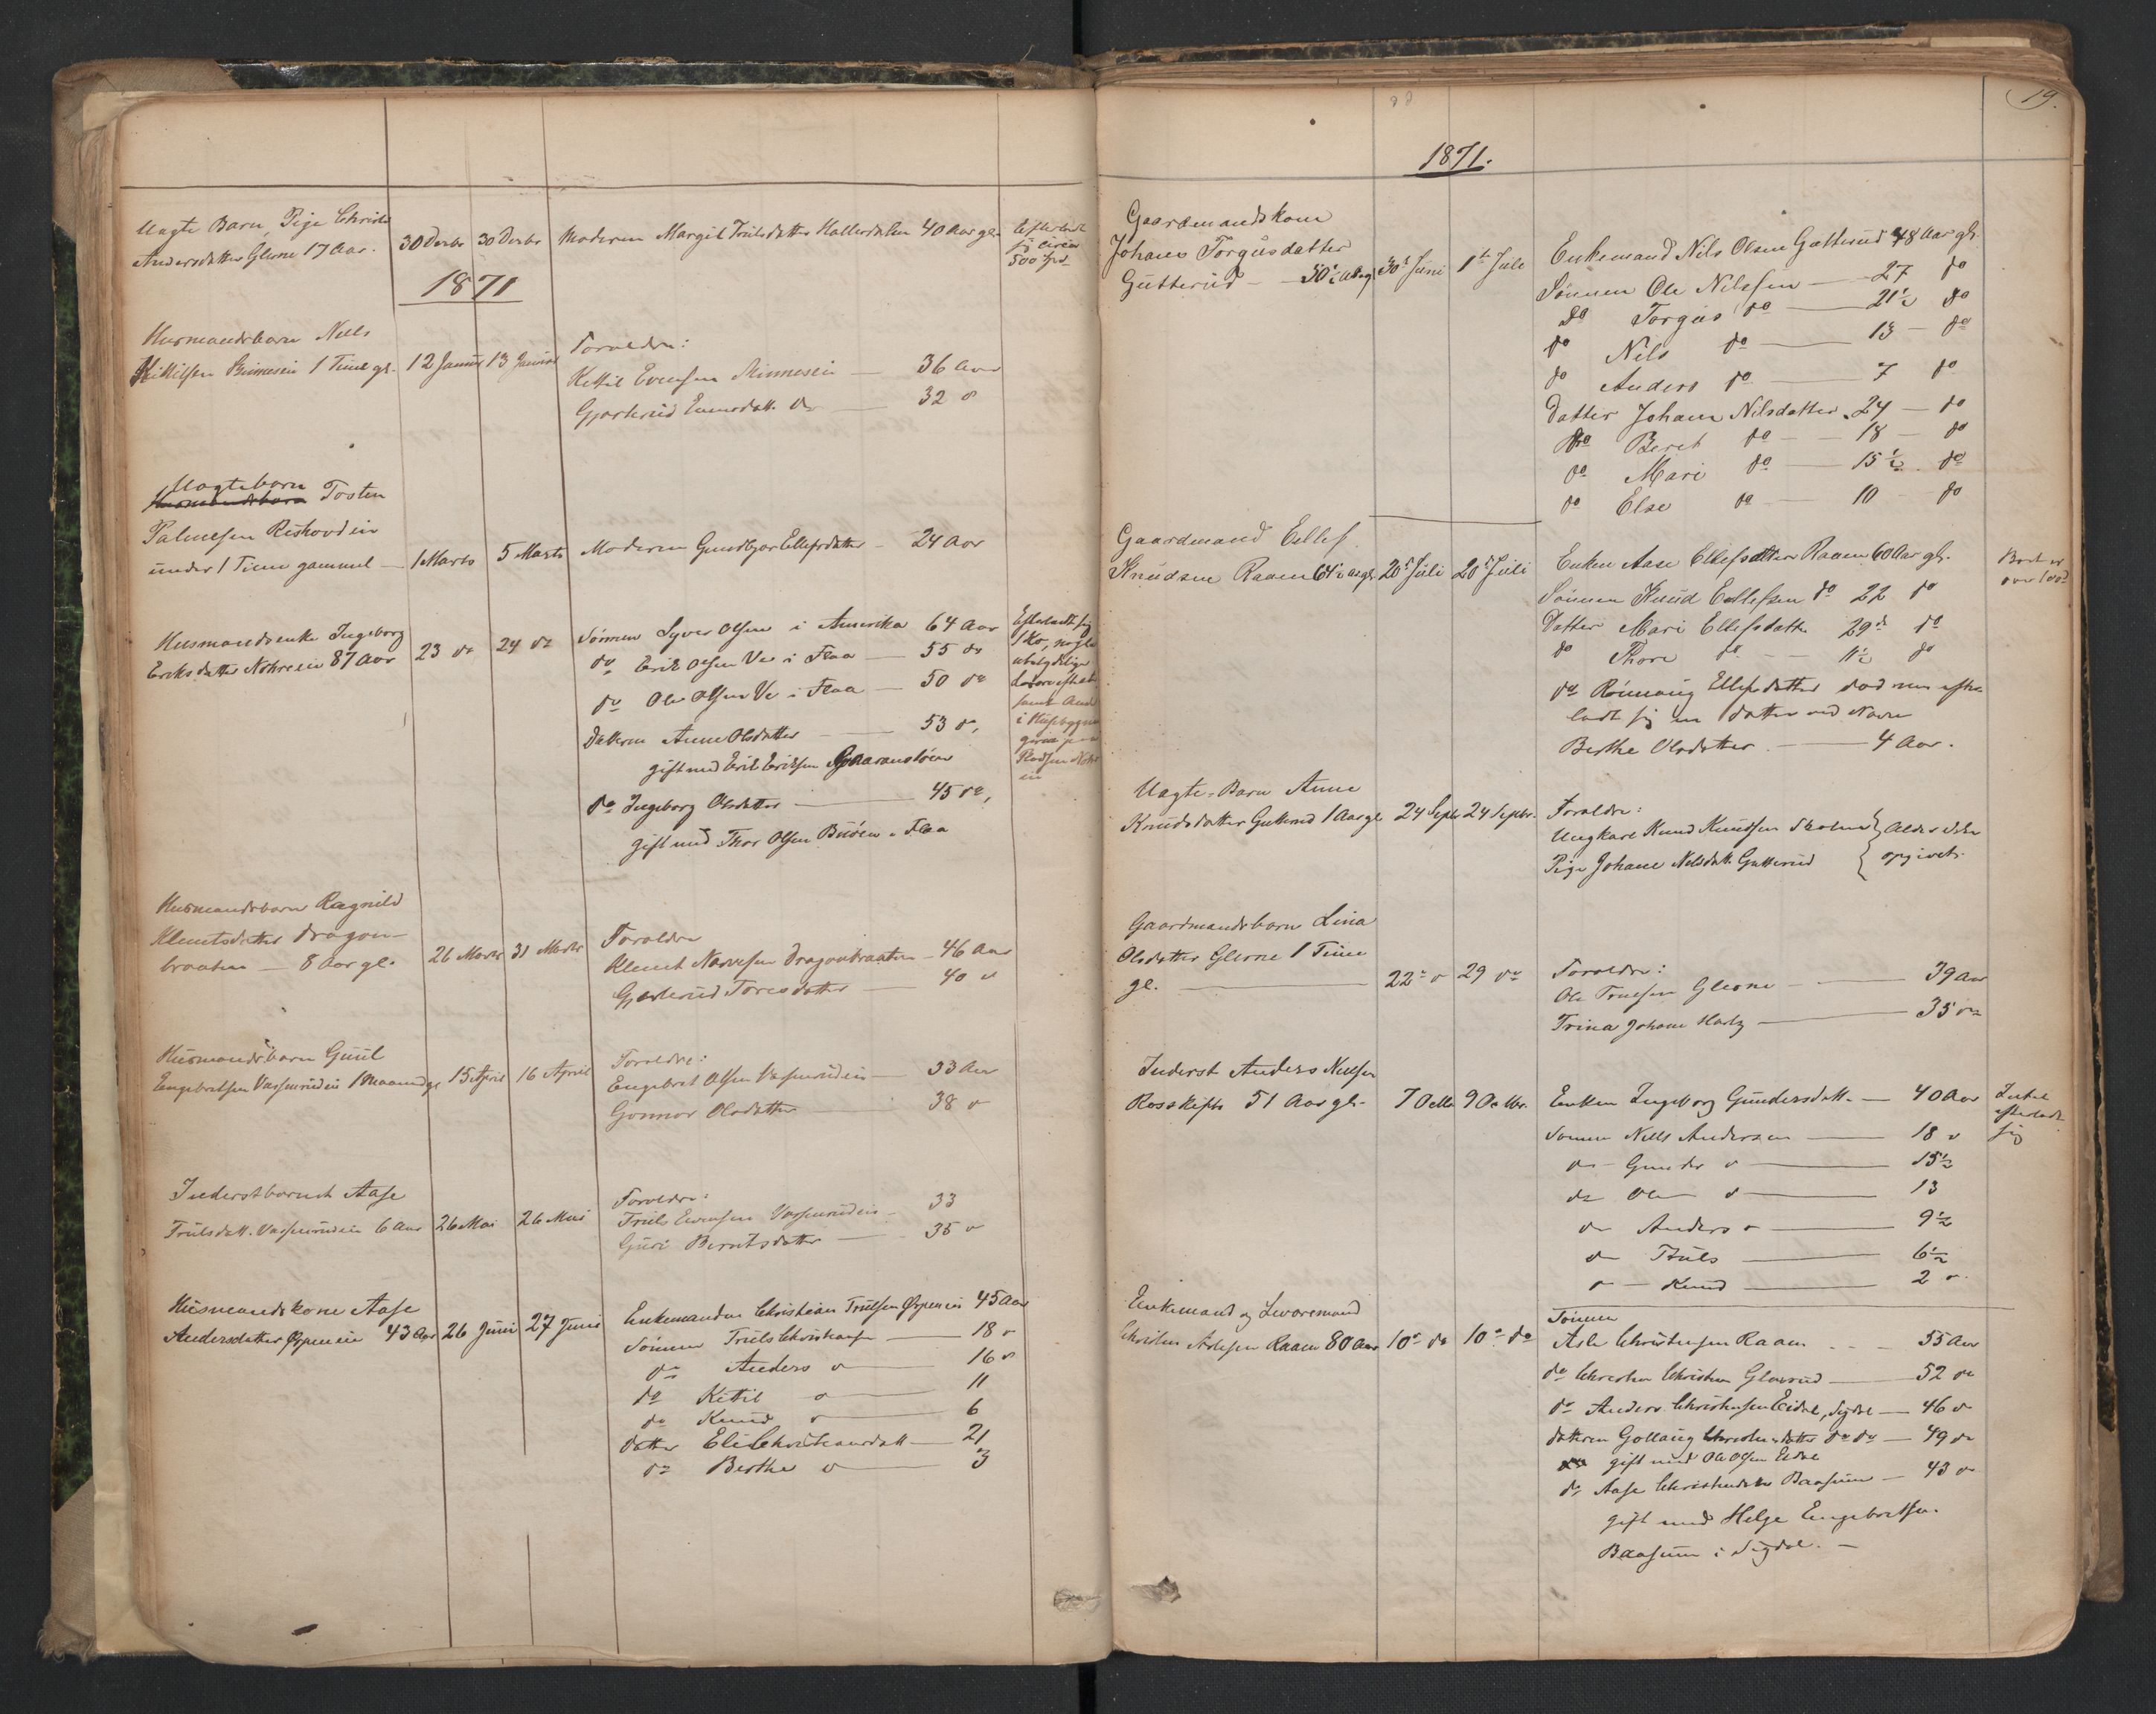 Uægte Barn, Pige Christi
Andersdatter Glesne 17 Aar.
30 Decbr 30 Decbr
Moderen Margit Trulsdatter Hallerdalen 40 Aar gl.
Efterlodt
sig circa
500 Spd
1871
Husmandsbarn Niels
Kittilsen 1 Time gl.
12 Januar 13 Januar
Forældre:
Kittil Evensen — 36 Aar
Gjertrud do — 32 "
Uægtebarn
Husmandsbarn Tosten
Palmesen Riskovdein
under 1 Time gammel
1 Marts 5 Marts
Moderen Gundbjør Ellefsdatter — 24 Aar
Husmandsenke Ingeborg
Eriksdatter 87 Aar
23 do 24 do
Sønnen Syver Olsen i Amerika 64 Aar
do Erik Olsen Ve i Flaa — 55 do
do Ole Olsen Ve i Flaa — 50 do
Datteren Anne Olsdatter — 53 do,
gift med Erik Eriksen
do Ingeborg Olsdatter — 45 do,
gift med Thor Olsen i Flaa
Efterlodt sig
1 Ko, nogle
ubetydelige
samt
i
Husmandsbarn Ragnild
Klemetsdatter Dragon-
braaten — 8 Aar gl.
26 Marts 31 Marts
Forældre
Klemet Narvesen Dragonbraaten — 46 Aar
Gjertrud Toresdatter — 40 "
Husmandsbarn Guul
Engebretsen Vassendrudein 1 Maaned gl
15 April 16 April
Forældre:
Engebret Olsen — 33 Aar
Gonnor Olsdatter — 38 "
Inderstbarnet Aase
Trulsdatt. 6 Aar
26 Mai 26 Mai
Forældre:
Truls Evensen — 33
Guri Berntsdatter — 35 "
Husmandskone Aase
Andersdatter 43 Aar
26 Juni 27 Juni
Enkemanden Christian Trulsen 45 Aar
Sønnen Truls Christiansen — 18 "
do Anders " — 16 "
do Kittil " — 11
do Knud " — 6
Datter Eli Christiansdatt — 21
do Berthe " — 3
19.
1871.
Gaardmandskone
Johane Torgusdatter
Gutterud — 50½ Aar gl
30te Juni 1te Juli
Enkemand Nils Olsen Gutterud 48 Aar gl.
Sønnen Ole Nilssen — 27 do
do Torgus do — 21½ do
do Nils do — 13 — do
do Anders do — 7 do
Datter Johane Nilsdatter 24 — do
do Berit do — 18 — do
do Mari do — 15½ do
do Else do — 10 do
Gaardmand Ellef
Knudsen Raaen 64½ Aar gl
20de Juli 20de Juli
Enken Aase Ellefsdatter Raaen 60 Aar gl.
Sønnen Knud Ellefsen do 22 do
Datter Mari Ellefsdatter 29 do
do Thore do — 11½ do
do Rønnaug Ellefsdatter død men efter
ladt sig en Datter ved Navn
Berthe Olsdatter — 4 Aar.
Boet er
over 100
Uægte-Barn Anne
Knudsdatter Gutterud 1 Aar gl
24 Septr 24 Septbr.
Forældre:
Ungkarl Knud Knudsen
Pige Johane Nilsdatt. Gutterud
Alder ikke
opgivet.
Gaardmandsbarn Lina
Olsdatter Glesne 1 Time
gl.
22de " 29 do
Forældre:
Ole Truesen Glesne — 39 Aar
Trina Johane — 35 do
Inderst Anders Nielsen
Rosskifte 51 Aar gl.
7 Octb 9 Octbr.
Enken Ingeborg Gundersdatt. — 40 Aar
Sønnen Niels Andersen — 18 "
do — Gunder " — 15½
do Ole " — 13
do Anders " — 9½
do Truls — 6½
do — Knud — 2 "
Intet
efterladt
sig
Enkemand og Livøremand
Christen Aslesen Raaen 80 Aar
10de do 10de do
Sønnen
Asle Christensen Raaen — 55 Aar
do Christen Christensen Glesrud — 52 do
do Anders Christensen Eidal, Sigdal — 46 "
Datteren Gollaug Christensdatter do do — 49 do
gift med Ole Olsen Eidal
do Aase Christensdatter Baasum — 43 "
gift med Helge Engebretsen
Baasum i Sigdal. —